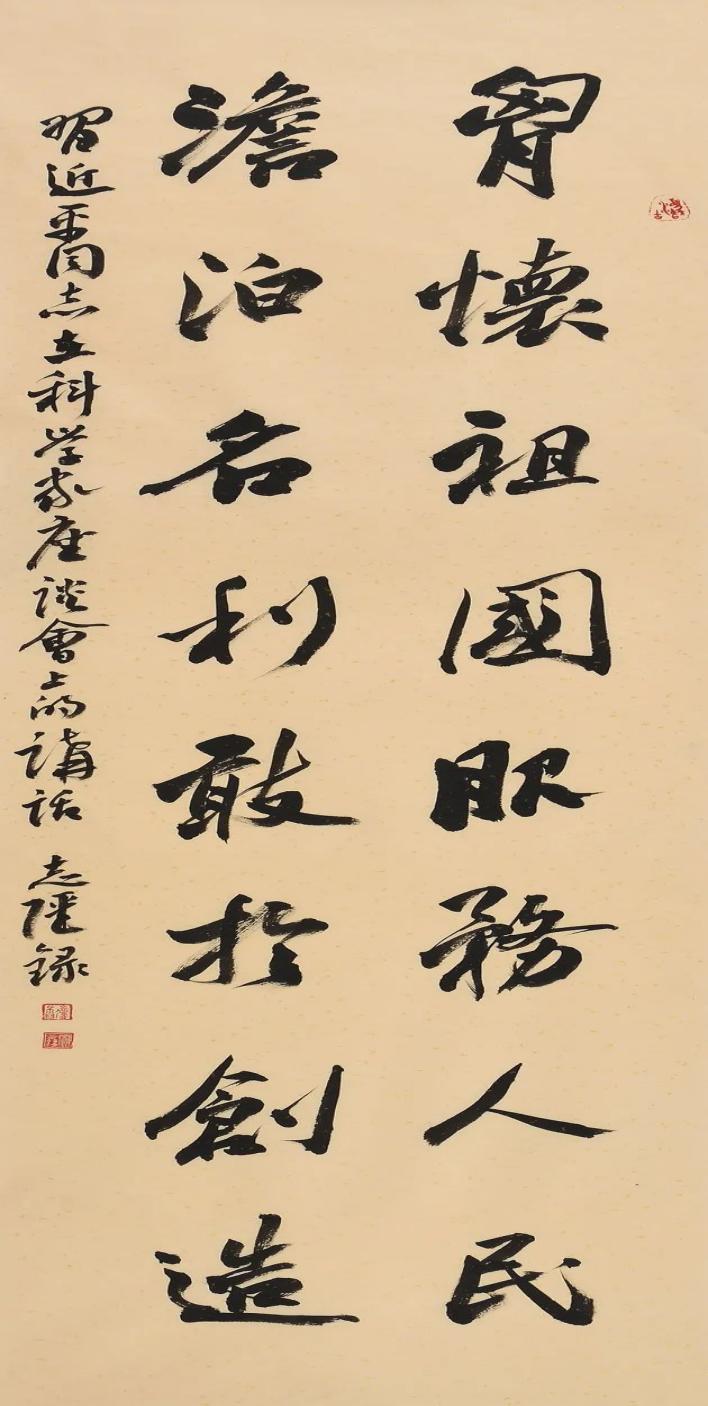 胷懷祖國服務人民
澹泊名利敢於創造
習近平同志在科学家座談會上的講話 志陸録